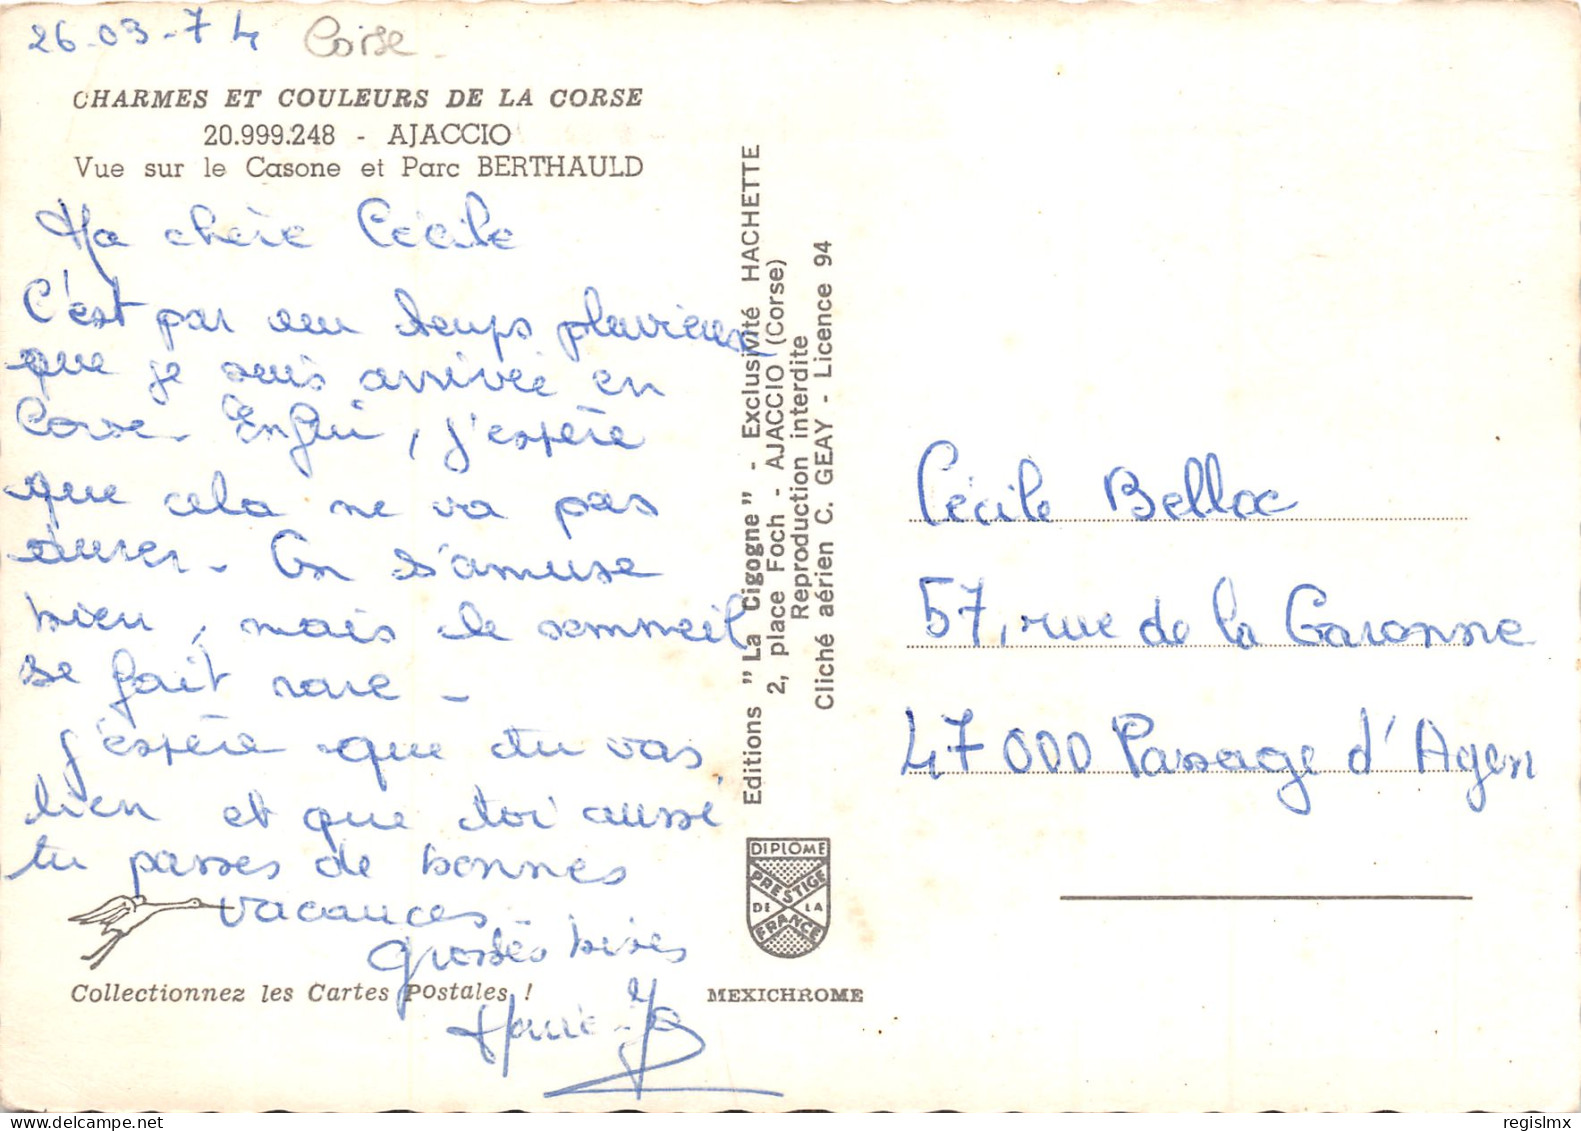 26-03-74 Corse
CHARMES ET COULEURS DE LA CORSE
20.999.248 - AJACCIO
Vue sur le Casone et Parc BERTHAULD
Ma chère Cécile
C'est par un temps pluvieux
que je suis arrivée en
Corse. Enfin, j'espère
que cela ne va pas
durer. On s'amuse
bien, mais le sommeil
se fait rare -
j'espère que tu vas
bien et que toi aussi
tu passes de bonnes
vacances.
Grosses bises
Marie-Jo
Collectionnez les Cartes Postales !
Editions "La Cigogne" - Exclusivité HACHETTE
2, place Foch - AJACCIO (Corse)
Reproduction interdite
Cliché aérien C. GEAY - Licence 94
DIPLOME
PRESTIGE
DE LA
FRANCE
MEXICHROME
Cécile Bellac
57, rue de la Garonne
47000 Passage d'Agen
regislmx